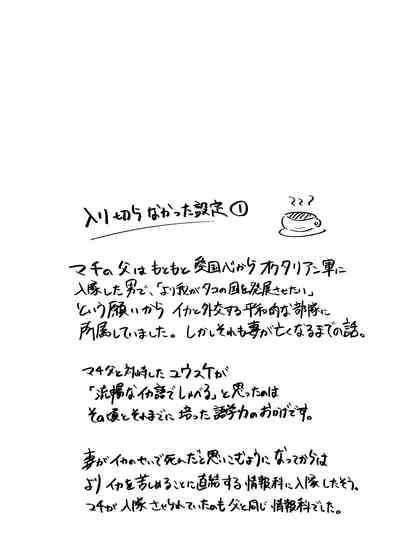 入り切らなかった設定①
マチの父はもともと愛国心からオクタリアン軍に
入隊した男で、「より我がタコの国を発展させたい」
という願いから イカと外交する平和的な部隊に
所属していました。しかしそれも妻が亡くなるまでの話。
マチ父と対峙した ユウスケが
「流暢なイカ語でしゃべる」と思ったのは
その頃とそれまでに 培った 語学力のおかげです。
妻がイカのせいで死んだと思いこむようになってからは
よりイカを苦しめることに直結する情報科に入隊したそう。
マチが入隊させられていたのも父と同じ情報科でした。